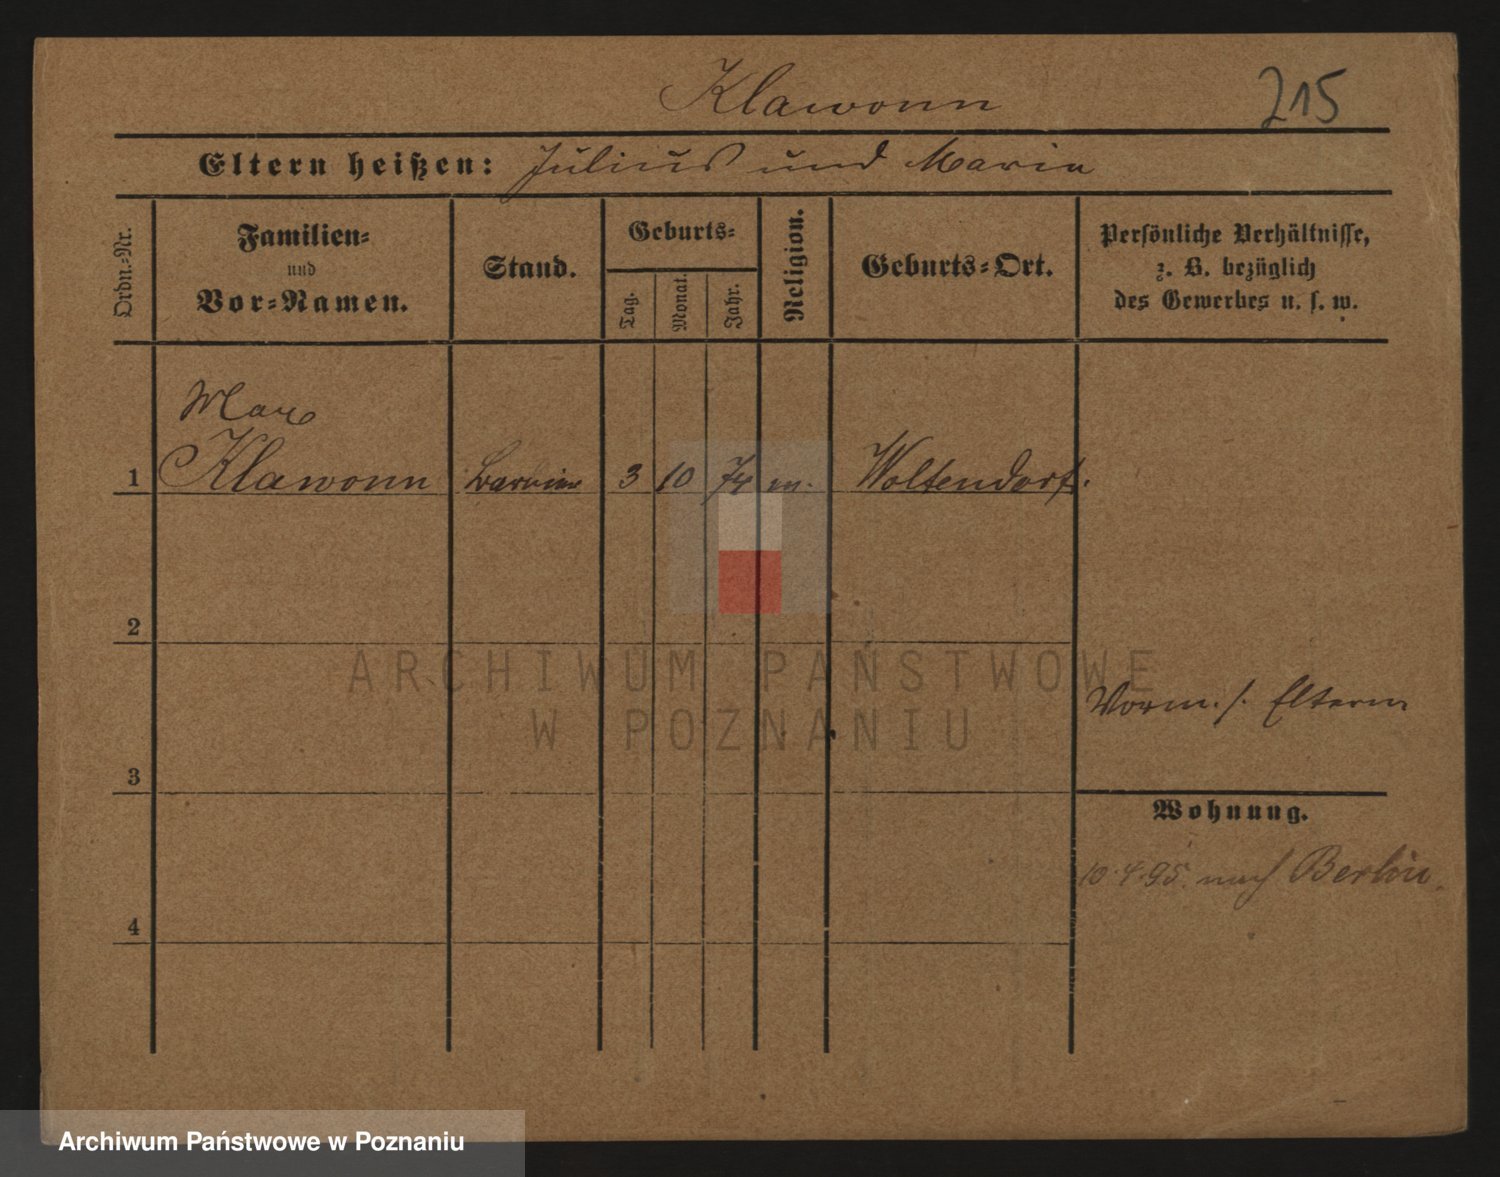 Klawonn
215
Eltern heißen: Julius und Maria
Ordn.-Nr.
Familien-
und
Vor-Namen.
Stand.
Geburts-
Tag.
Monat.
Jahr.
Religion.
Geburts-Ort.
Persönliche Verhältnisse,
z. B. bezüglich
des Gewerbes u. s. w.
Max
1 Klawonn Barbier 3 10 74 Woltendorf.
2
ARCHIWUM PAŃSTWOWE
W POZNANIU
Vorm. s. Eltern
3
Wohnung.
10.4.95. nach Berlin.
4
Archiwum Państwowe w Poznaniu